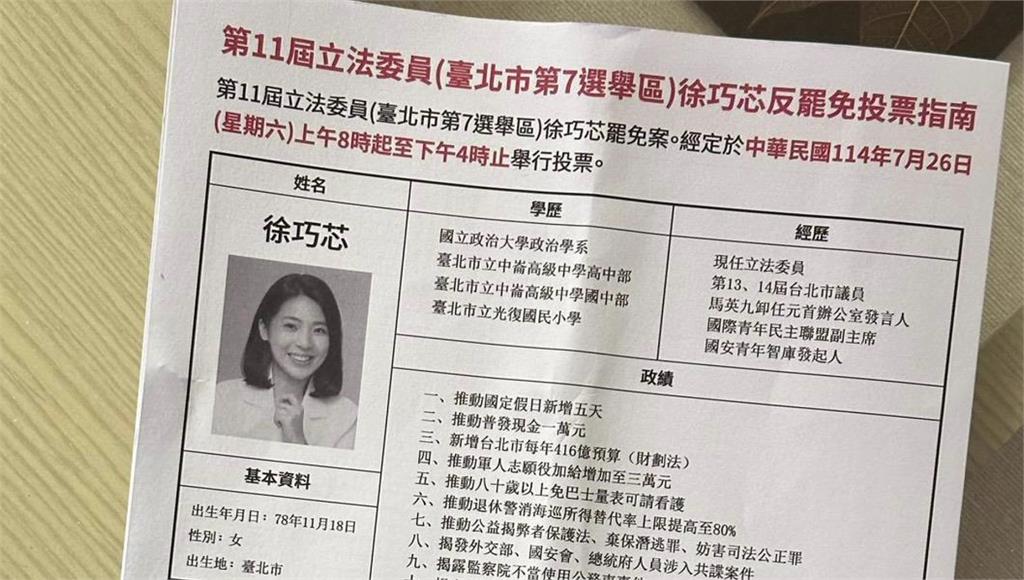 第11屆立法委員(臺北市第7選舉區)徐巧芯反罷免投票指南
第11屆立法委員(臺北市第7選舉區)徐巧芯罷免案。經定於中華民國114年7月26日
(星期六)上午8時起至下午4時止舉行投票。
姓名
徐巧芯
學歷
國立政治大學政治學系
臺北市立中崙高級中學高中部
臺北市立中崙高級中學國中部
臺北市立光復國民小學
經歷
現任立法委員
第13、14屆台北市議員
馬英九卸任元首辦公室發言人
國際青年民主聯盟副主席
國安青年智庫發起人
政績
一、推動國定假日新增五天
二、推動普發現金一萬元
三、新增台北市每年416億預算（財劃法）
四、推動軍人志願役加給增加至三萬元
五、推動八十歲以上免巴士量表可請看護
六、推動退休警消海巡所得替代率上限提高至80%
七、推動公益揭弊者保護法、棄保潛逃罪、妨害司法公正罪
八、揭發外交部、國安會、總統府人員涉入共諜案件
九、揭露監察院不當使用公務車事件
基本資料
出生年月日：78年11月18日
性別：女
出生地：臺北市